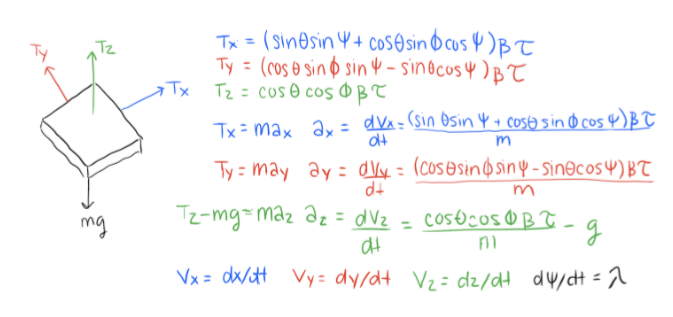 Ty
Tz
Tx
mg
Tx = (sinθsinψ + cosθsinϕcosψ)βτ
Ty = (cosθsinϕsinψ - sinθcosψ)βτ
Tz = cosθcosϕβτ
Tx = max ax = dVx/dt = (sinθsinψ + cosθsinϕcosψ)βτ/m
Ty = may ay = dVy/dt = (cosθsinϕsinψ - sinθcosψ)βτ/m
Tz - mg = maz az = dVz/dt = cosθcosϕβτ/m - g
Vx = dx/dt Vy = dy/dt Vz = dz/dt dψ/dt = λ